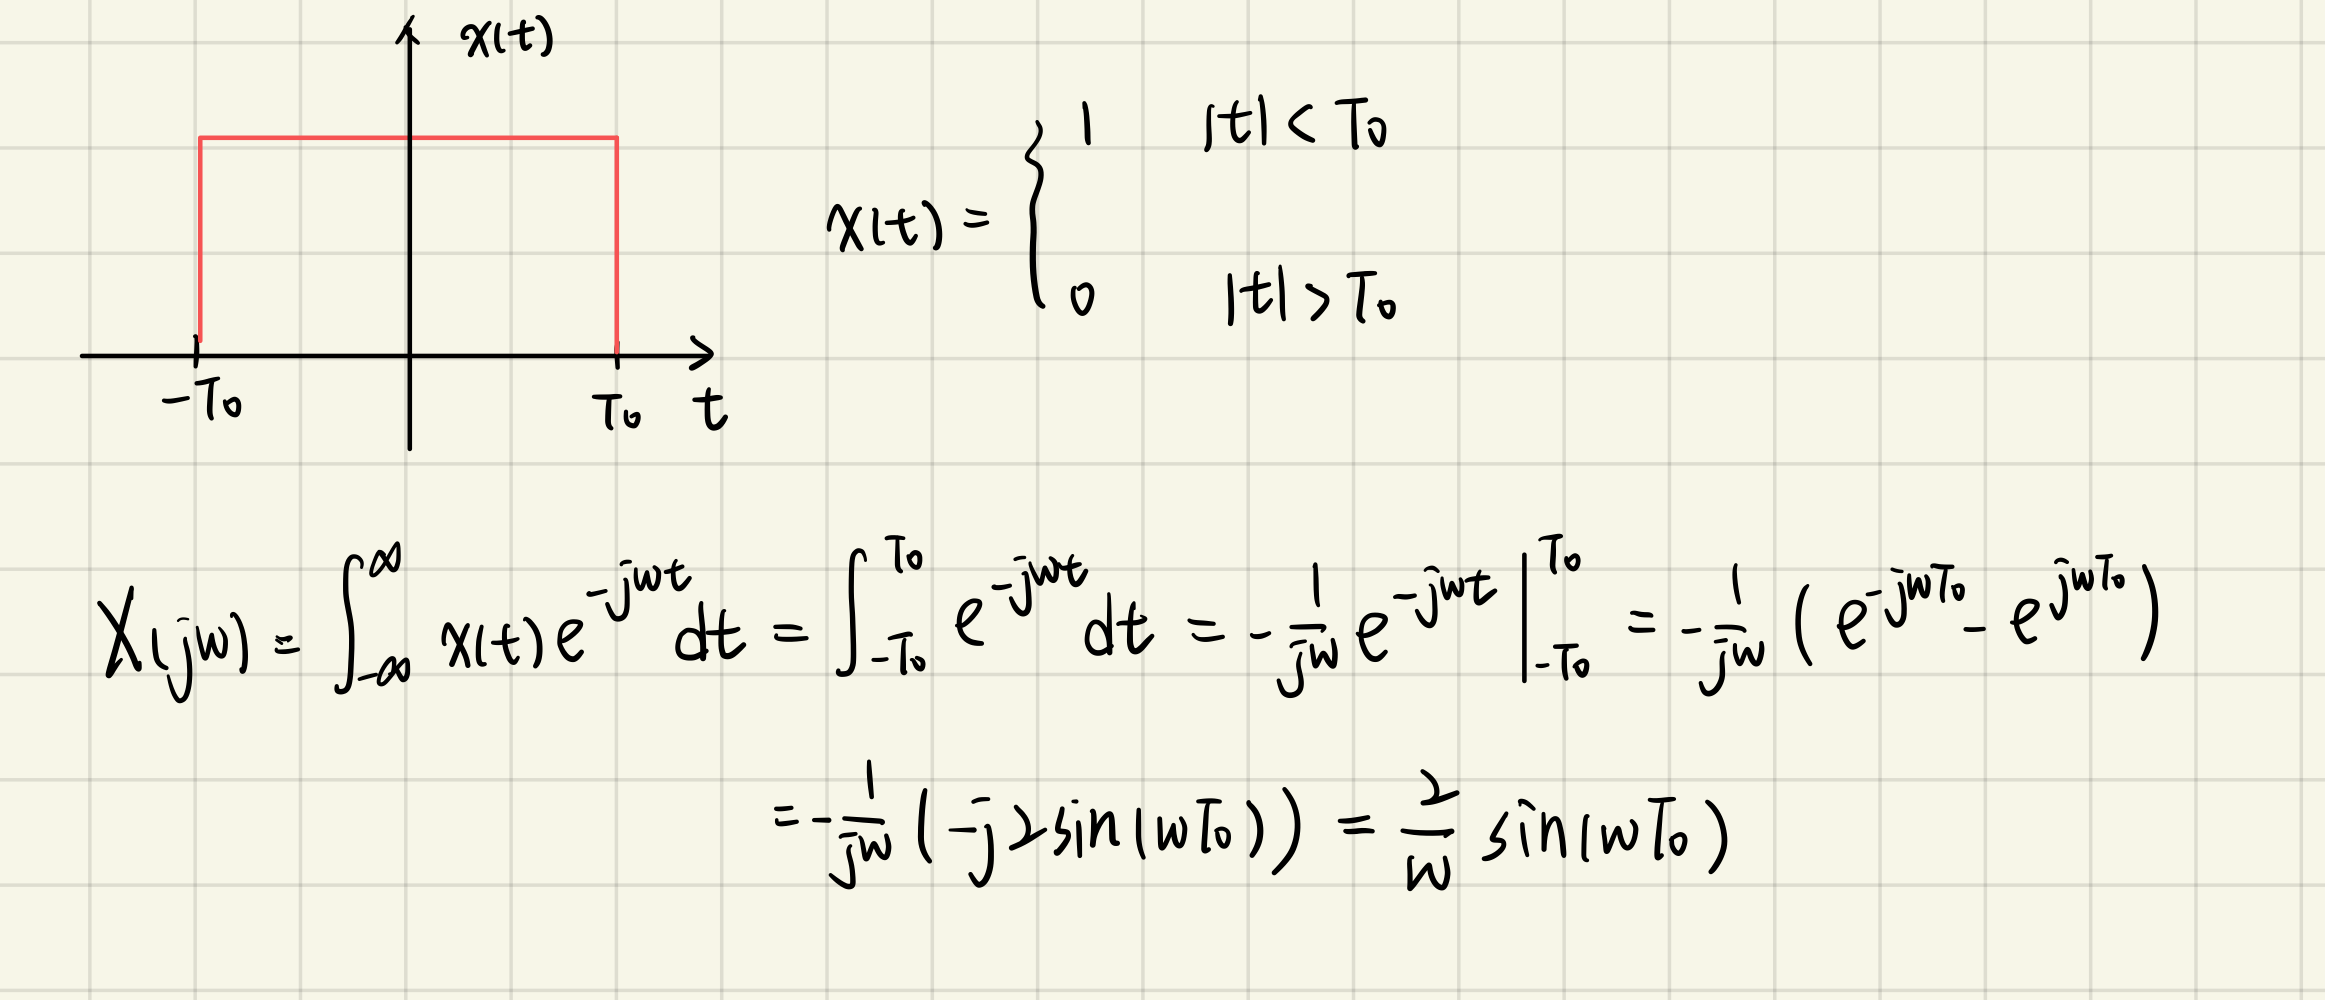 x(t)
x(t) = { 1 |t| < T₀
0 |t| > T₀
-T₀ T₀ t
X(jw) = ∫_{-∞}^{∞} x(t) e^{-jwt} dt = ∫_{-T₀}^{T₀} e^{-jwt} dt = - 1/jw e^{-jwt} |_{-T₀}^{T₀} = - 1/jw ( e^{-jwT₀} - e^{jwT₀} )
= - 1/jw ( -j2sin(wT₀) ) = 2/w sin(wT₀)